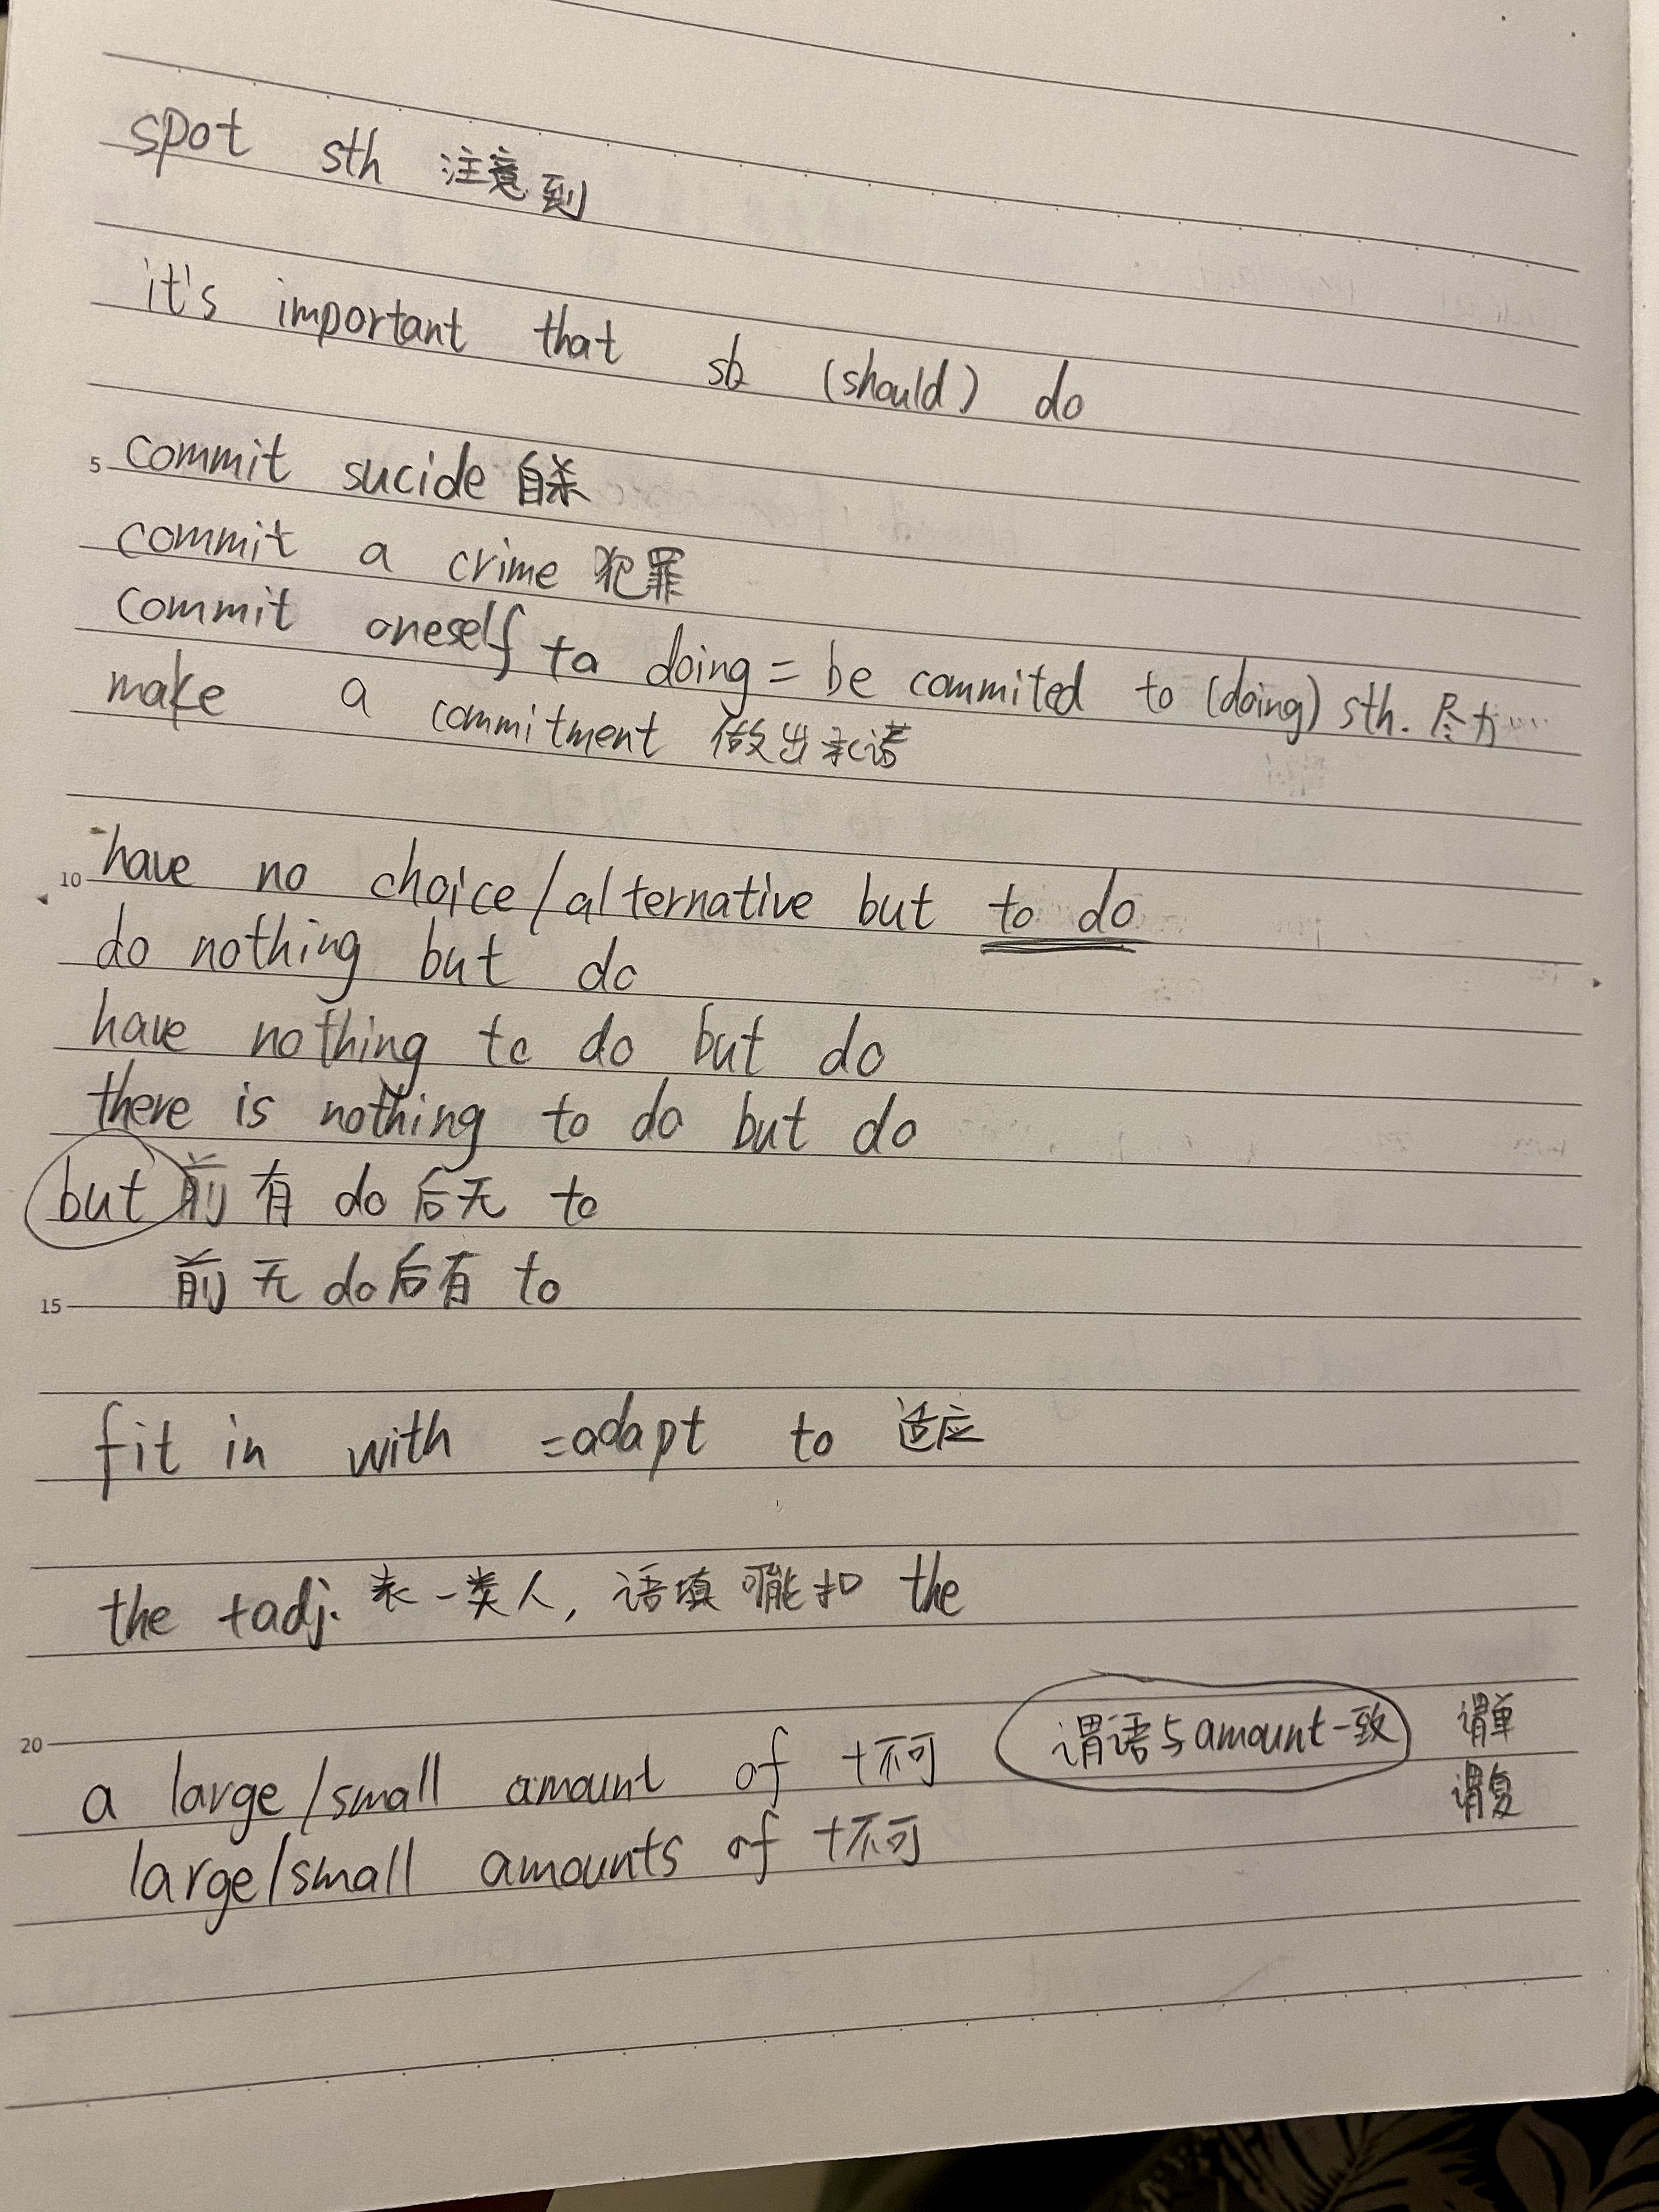 spot sth 注意到
it's important that sb (should) do
5 commit suicide 自杀
commit a crime 犯罪
commit oneself to doing = be commited to (doing) sth.
make a commitment 做出承诺
10 have no choice/alternative but to do
do nothing but do
have nothing to do but do
there is nothing to do but do
but 前有 do 后无 to
15 前无 do 后有 to
fit in with = adapt to 适应
the + adj. 表一类人, 谓语 the
20 谓语与 amount 一致 谓单
a large/small amount of + 不可 谓复
large/small amounts of + 不可